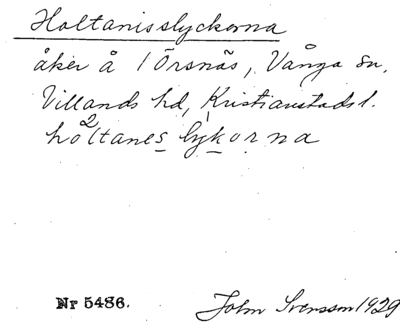 Holtanisslyckorna
åker å 1 Örsnäs, Vånga sn,
Villands hd, Kristianstads l.
ho2ltanes lykorna
Nr 5486. John Svensson 1929